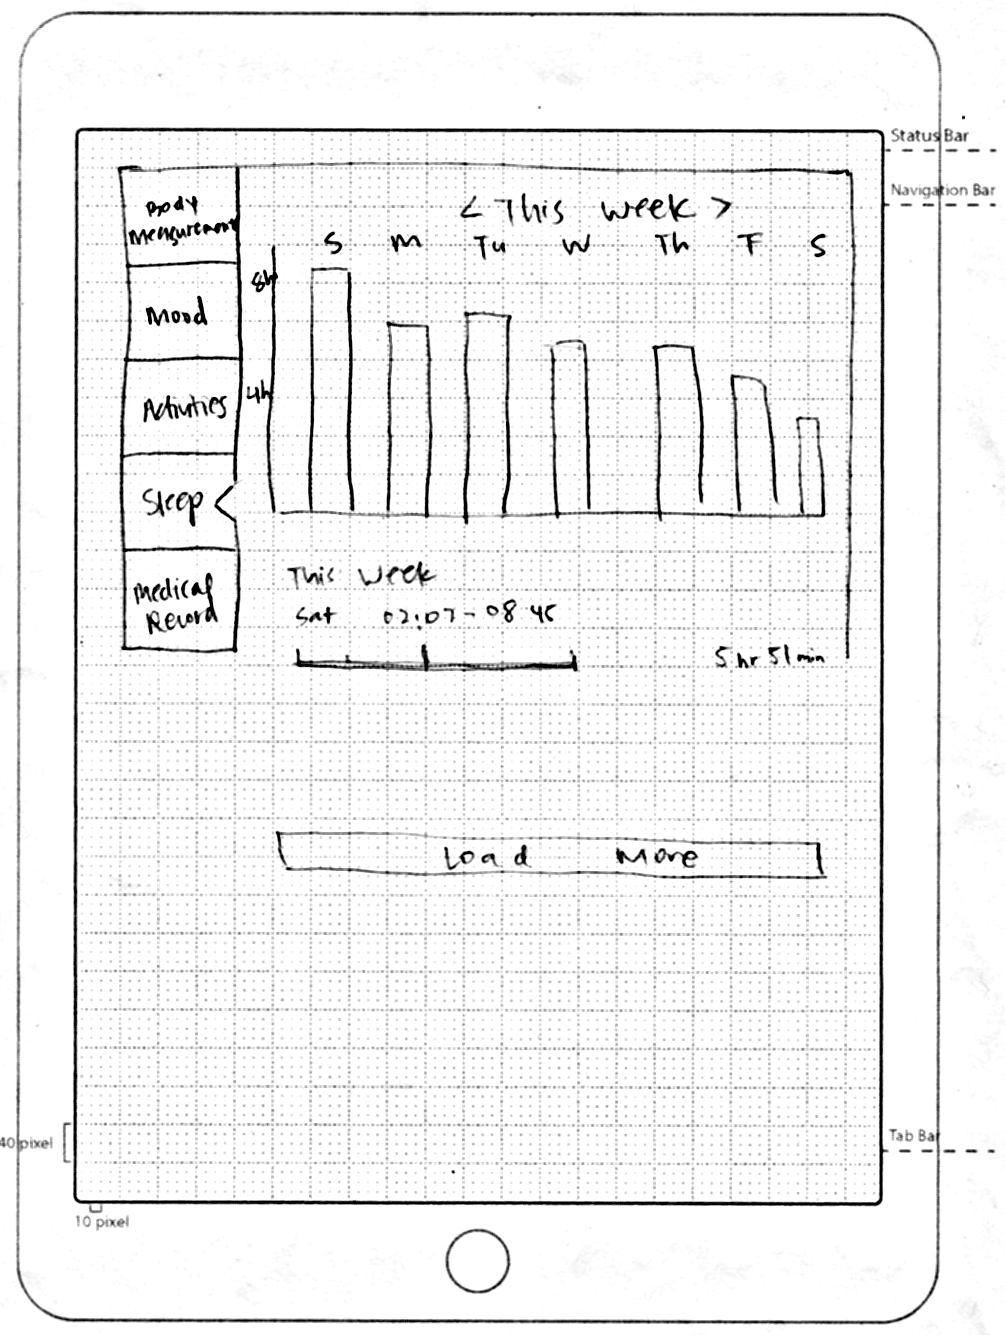 Status Bar
Navigation Bar
Body
Measurement
Mood
Activities
Sleep
Medical
Record
< This week >
S M Tu W Th F S
8h
4h
This Week
Sat 02:07 - 08 45
5 hr 51 min
Load More
40 pixel
Tab Bar
10 pixel